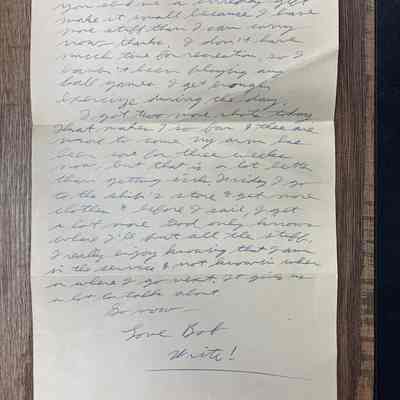 you send me a birthday gift
make it small because I have
more stuff than I can carry
now thanks. I don't have
much time for recreation, so I
haven't been playing any
ball games. I get enough
exercise during the day.
I got two more shots today
That makes 7 so far & there are
more to come my arm has
been sore for three weeks
now, but that is a lot better
than getting sick. Friday I go
to the ship's store & get more
clothes & before I sail, I get
a lot more God only knows
where I'll put all the stuff.
I really enjoy knowing that I am
in the service & not knowin when
or where I go next. It gives us
a lot to talk about
So now –
Love Bob
Write!